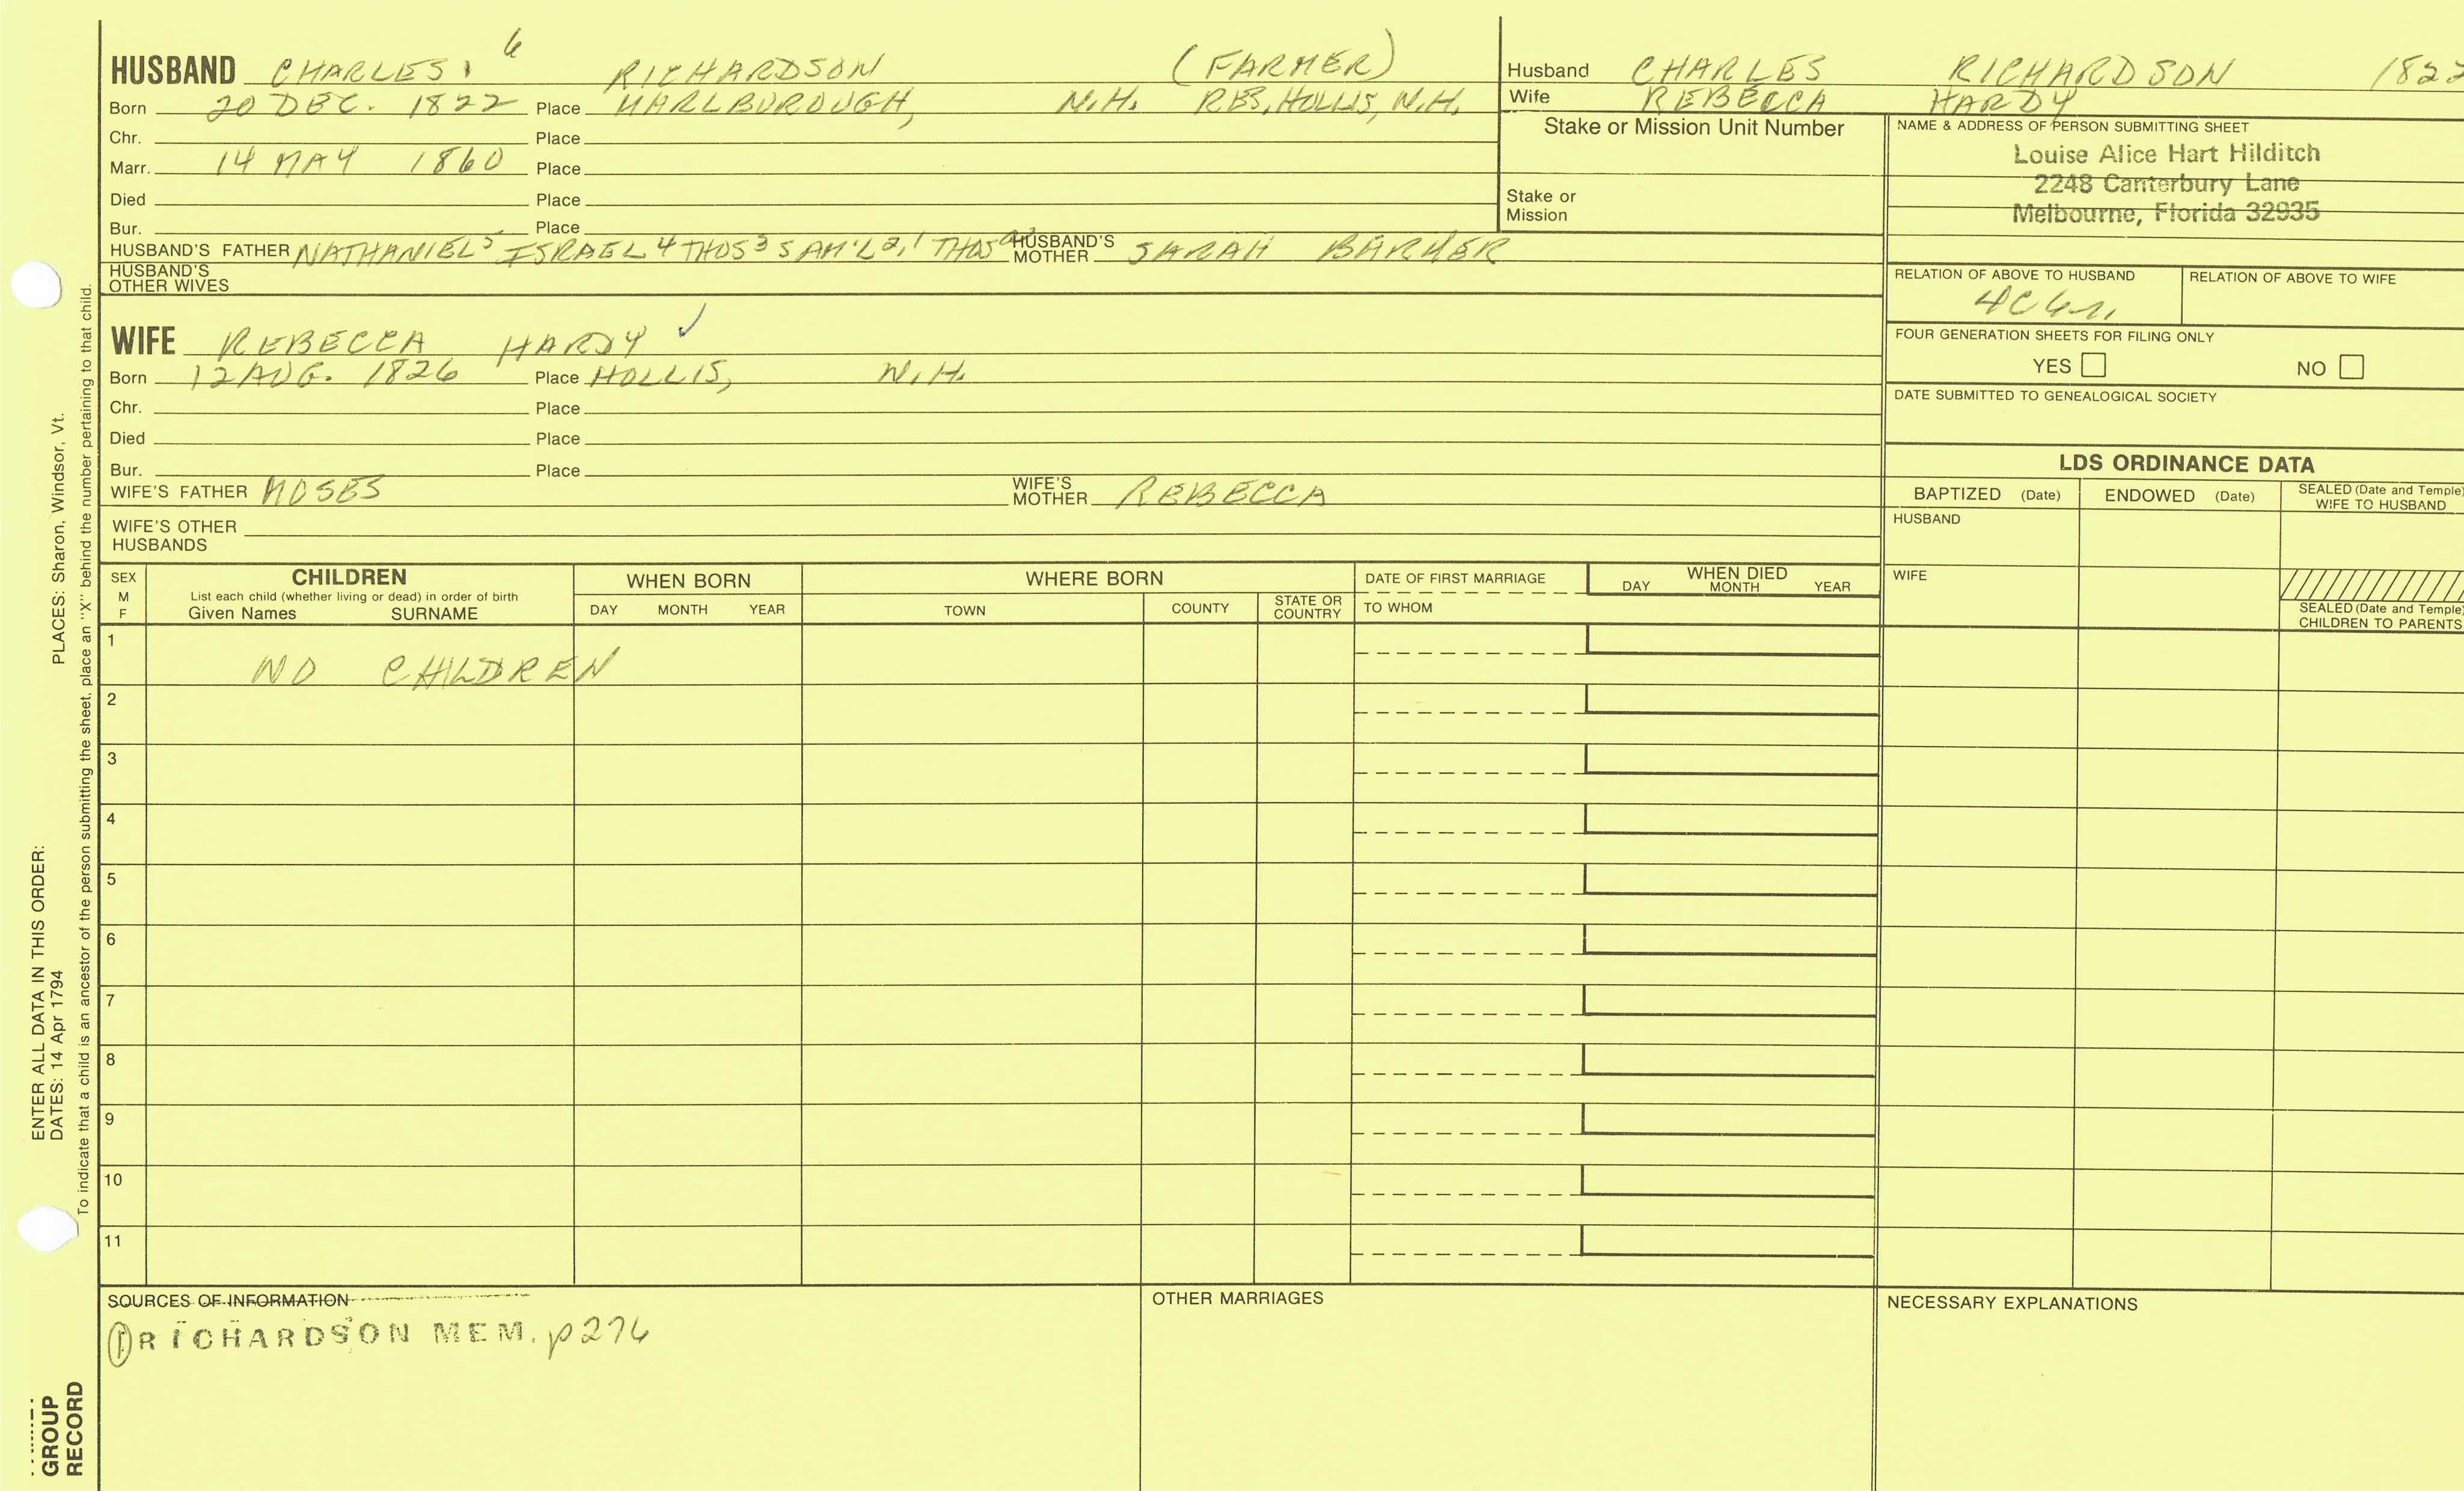 HUSBAND CHARLES 6 RICHARDSON (FARMER)
Born 20 DEC. 1822 Place MARLBOROUGH, N.H. RES, HOLLIS, N.H.
Chr. Place
Marr. 14 MAY 1860 Place
Died Place
Bur. Place
HUSBAND'S FATHER NATHANIEL5 ISRAEL 4 THOS 3 SAM'L 2,1 THOS HUSBAND'S MOTHER SARAH BARKER
HUSBAND'S OTHER WIVES
Husband CHARLES RICHARDSON 1822
Wife REBECCA HARDY
Stake or Mission Unit Number
Stake or Mission
NAME & ADDRESS OF PERSON SUBMITTING SHEET
Louise Alice Hart Hilditch
2248 Canterbury Lane
Melbourne, Florida 32935
RELATION OF ABOVE TO HUSBAND RELATION OF ABOVE TO WIFE
FOUR GENERATION SHEETS FOR FILING ONLY
YES NO
DATE SUBMITTED TO GENEALOGICAL SOCIETY
WIFE REBECCA HARDY ✓
Born 12 AUG. 1826 Place HOLLIS, N.H.
Chr. Place
Died Place
Bur. Place
WIFE'S FATHER MOSES WIFE'S MOTHER REBECCA
WIFE'S OTHER HUSBANDS
LDS ORDINANCE DATA
BAPTIZED (Date) ENDOWED (Date) SEALED (Date and Temple) WIFE TO HUSBAND
HUSBAND
WIFE
SEALED (Date and Temple) CHILDREN TO PARENTS
SEX M F
CHILDREN
List each child (whether living or dead) in order of birth
Given Names SURNAME
WHEN BORN
DAY MONTH YEAR
WHERE BORN
TOWN COUNTY STATE OR COUNTRY
DATE OF FIRST MARRIAGE
TO WHOM
WHEN DIED
DAY MONTH YEAR
1 NO CHILDREN
2
3
4
5
6
7
8
9
10
11
SOURCES OF INFORMATION
① RICHARDSON MEM. p276
OTHER MARRIAGES
NECESSARY EXPLANATIONS
ENTER ALL DATA IN THIS ORDER:
DATES: 14 Apr 1794 PLACES: Sharon, Windsor, Vt.
To indicate that a child is an ancestor of the person submitting the sheet, place an "X" behind the number pertaining to that child.
GROUP
RECORD